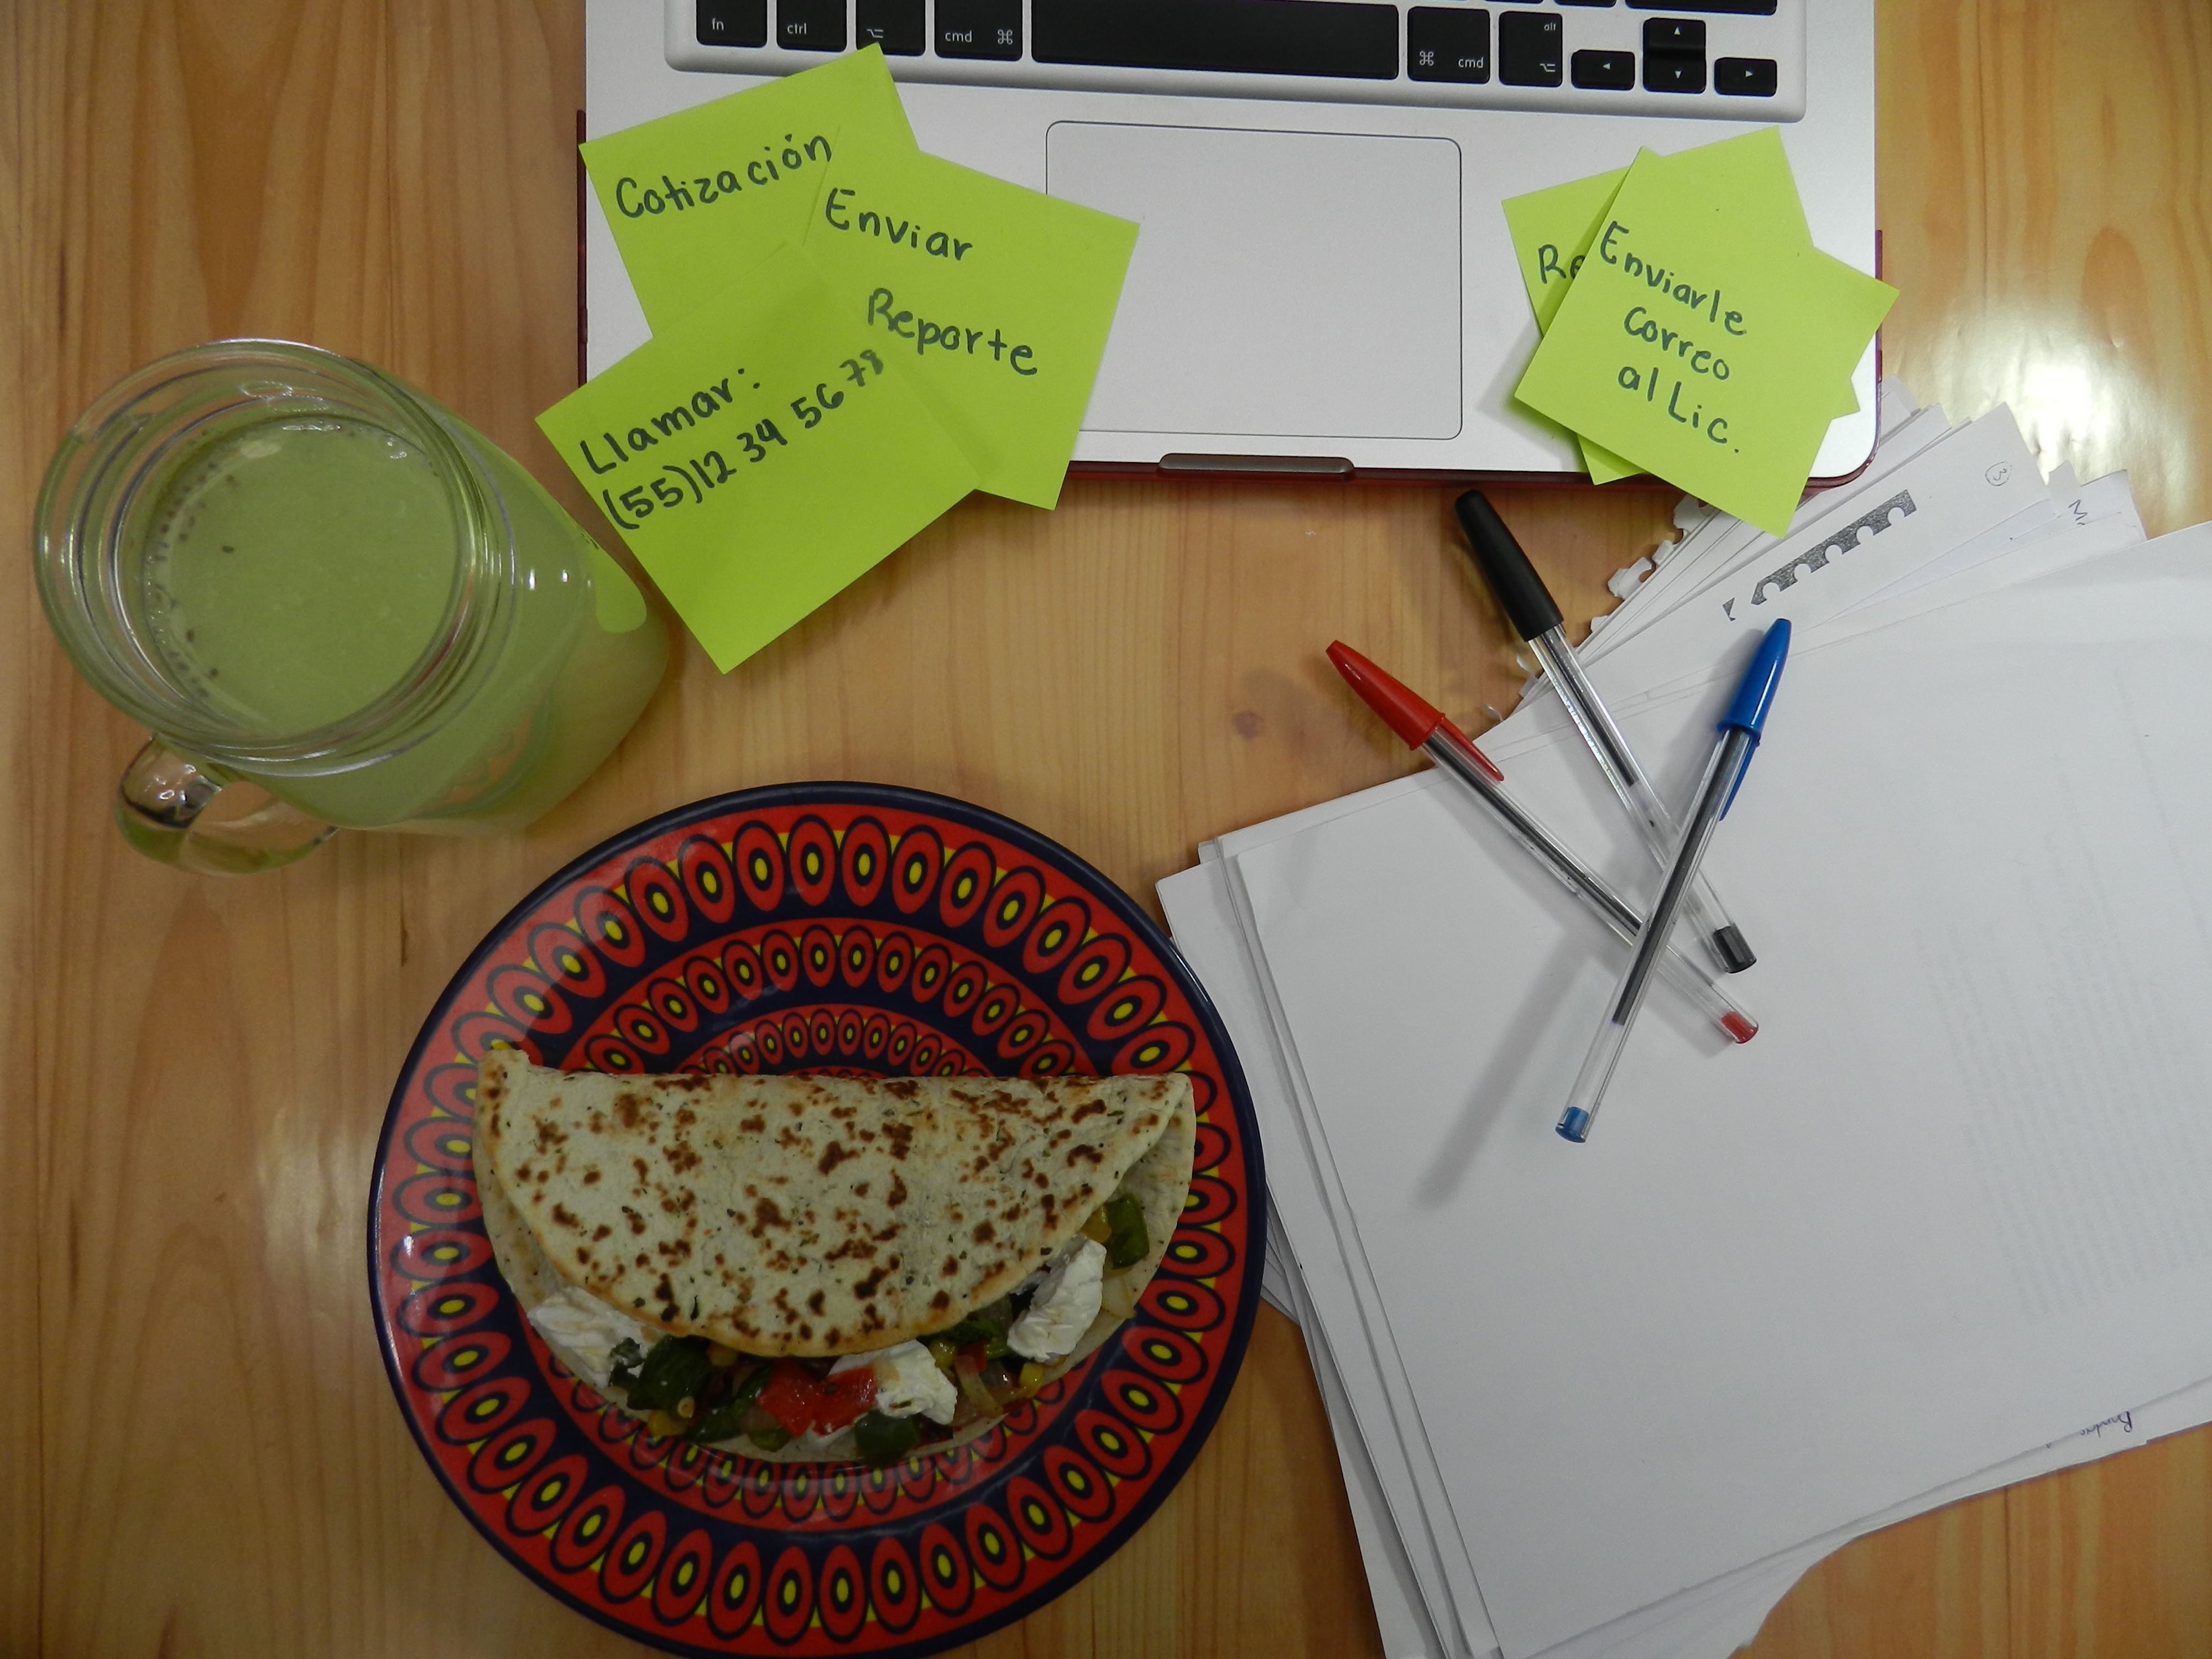 fn
ctrl
cmd
cmd
alt
Cotización
Enviar
Reporte
Llamar:
(55)12 34 56 78
Enviarle
Correo
al Lic.
3